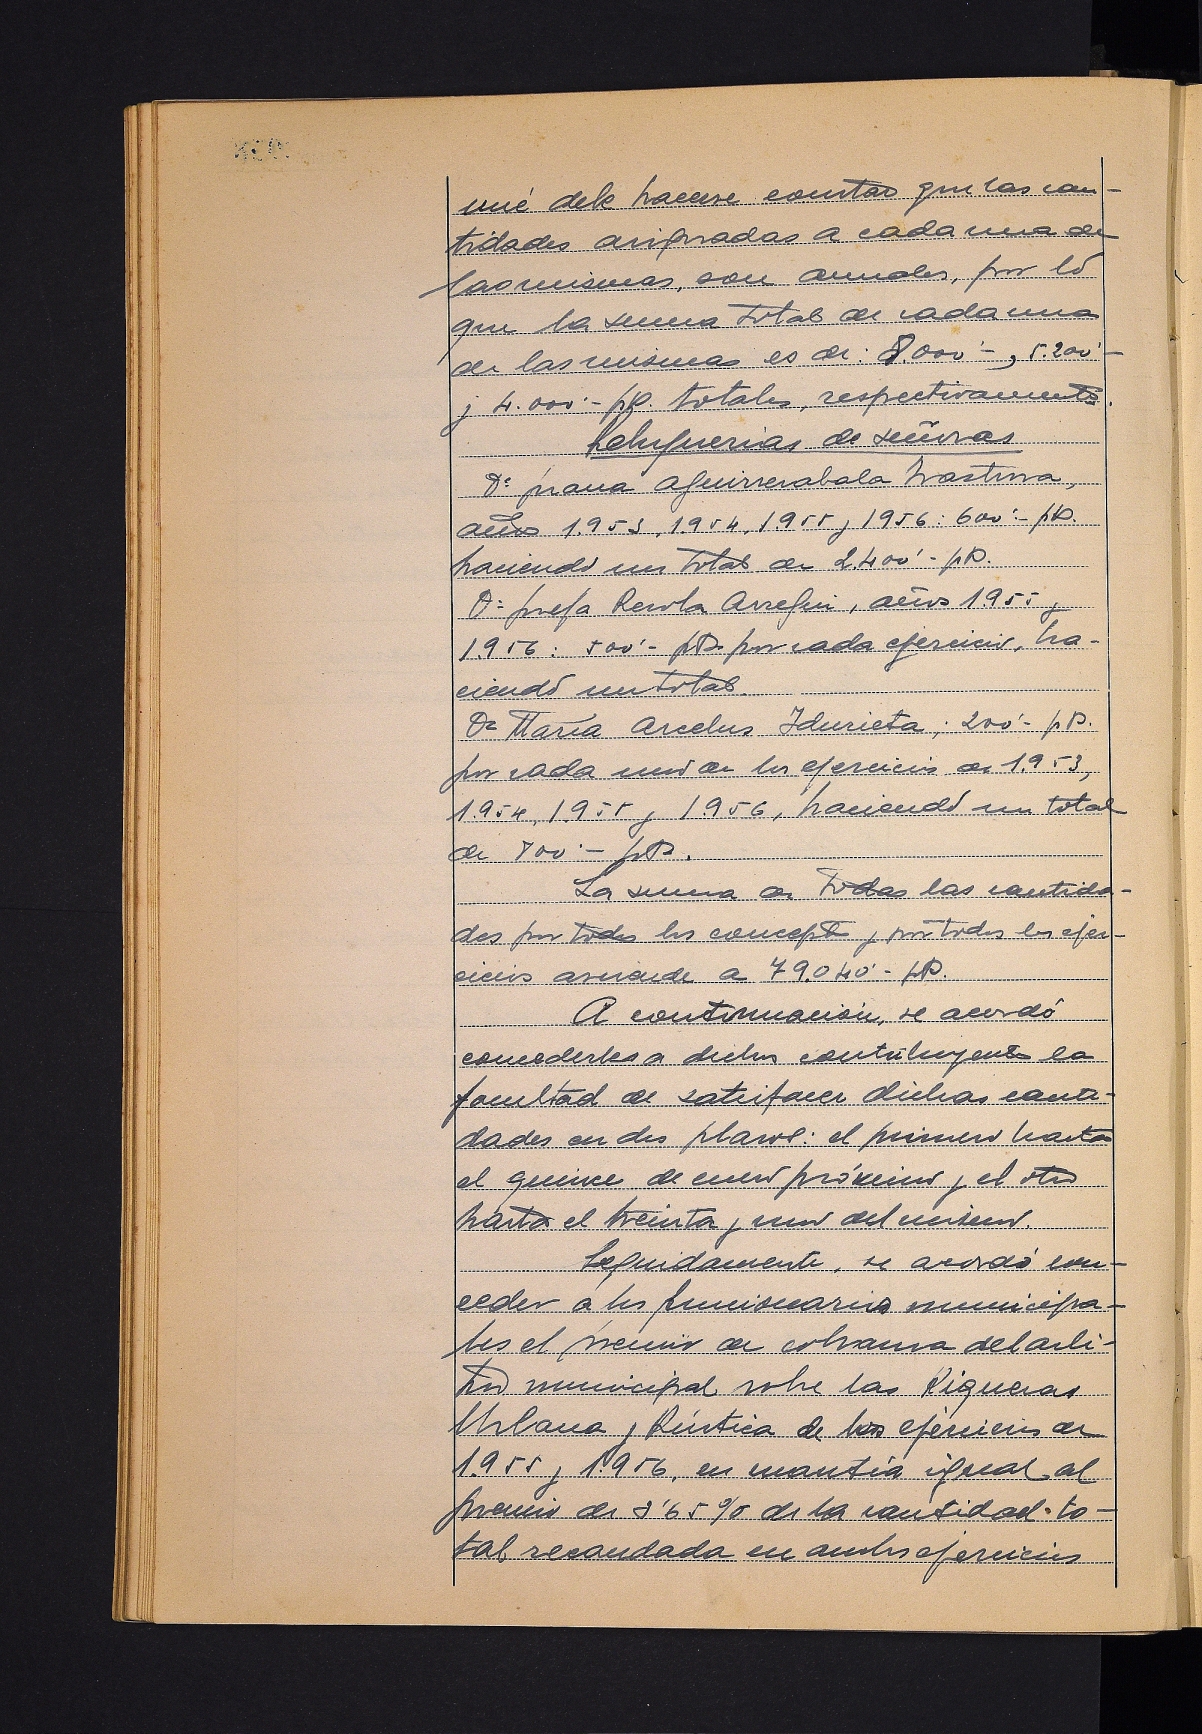 mié debe hacerse constar que las can-
tidades asignadas a cada una de
las mismas, son anuales, por lo
que la suma total de cada una
de las mismas es de: 8.000'-, 5.200'-
y 4.000'- pts. totales, respectivamente.
Peluquerias de señoras
Dª Juana Aguirrezabala
años 1.953, 1.954, 1.955 y 1956: 600'- pts.
haciendo un total de 2.400'- pts.
Dª Josefa Rezola Arregui, años 1.955 y
1.956: 500'- pts. por cada ejercicio, ha-
ciendo un total.
Dª María Arcelus Idurieta, : 200'- pts.
por cada uno de los ejercicios de 1.953,
1.954, 1.955 y 1.956, haciendo un total
de 800'- pts.
La suma de todas las cantida-
des por todos los conceptos y por todos los ejer-
cicios asciende a 79.040'- pts.
A continuación, se acordó
concederles a dichos contribuyentes la
facultad de satisfacer dichas canti-
dades en dos plazos: el primero hasta
el quince de enero próximo y el otro
hasta el treinta y uno del mismo.
Seguidamente, se acordó con-
ceder a los funcionarios municipa-
les el premio de cobranza del arbi-
trio municipal sobre las Riquezas
Urbana y Rústica de los ejercicios de
1.955 y 1.956, en cuantía igual al
premio de 3'65 % de la cantidad to-
tal recaudada en ambos ejercicios